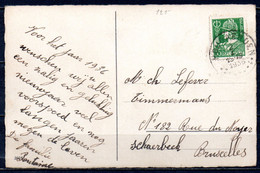 Voor het Jaar 1936
wenschen wij allen
een zalig en gelukkig
nieuwjaar veel
voorspoed en nog
langen jaaren
mogen de leven
famille
M. Ch Lefever
Timmermans
N° 182 Rue du Noyer
Schaerbeek
Bruxelles